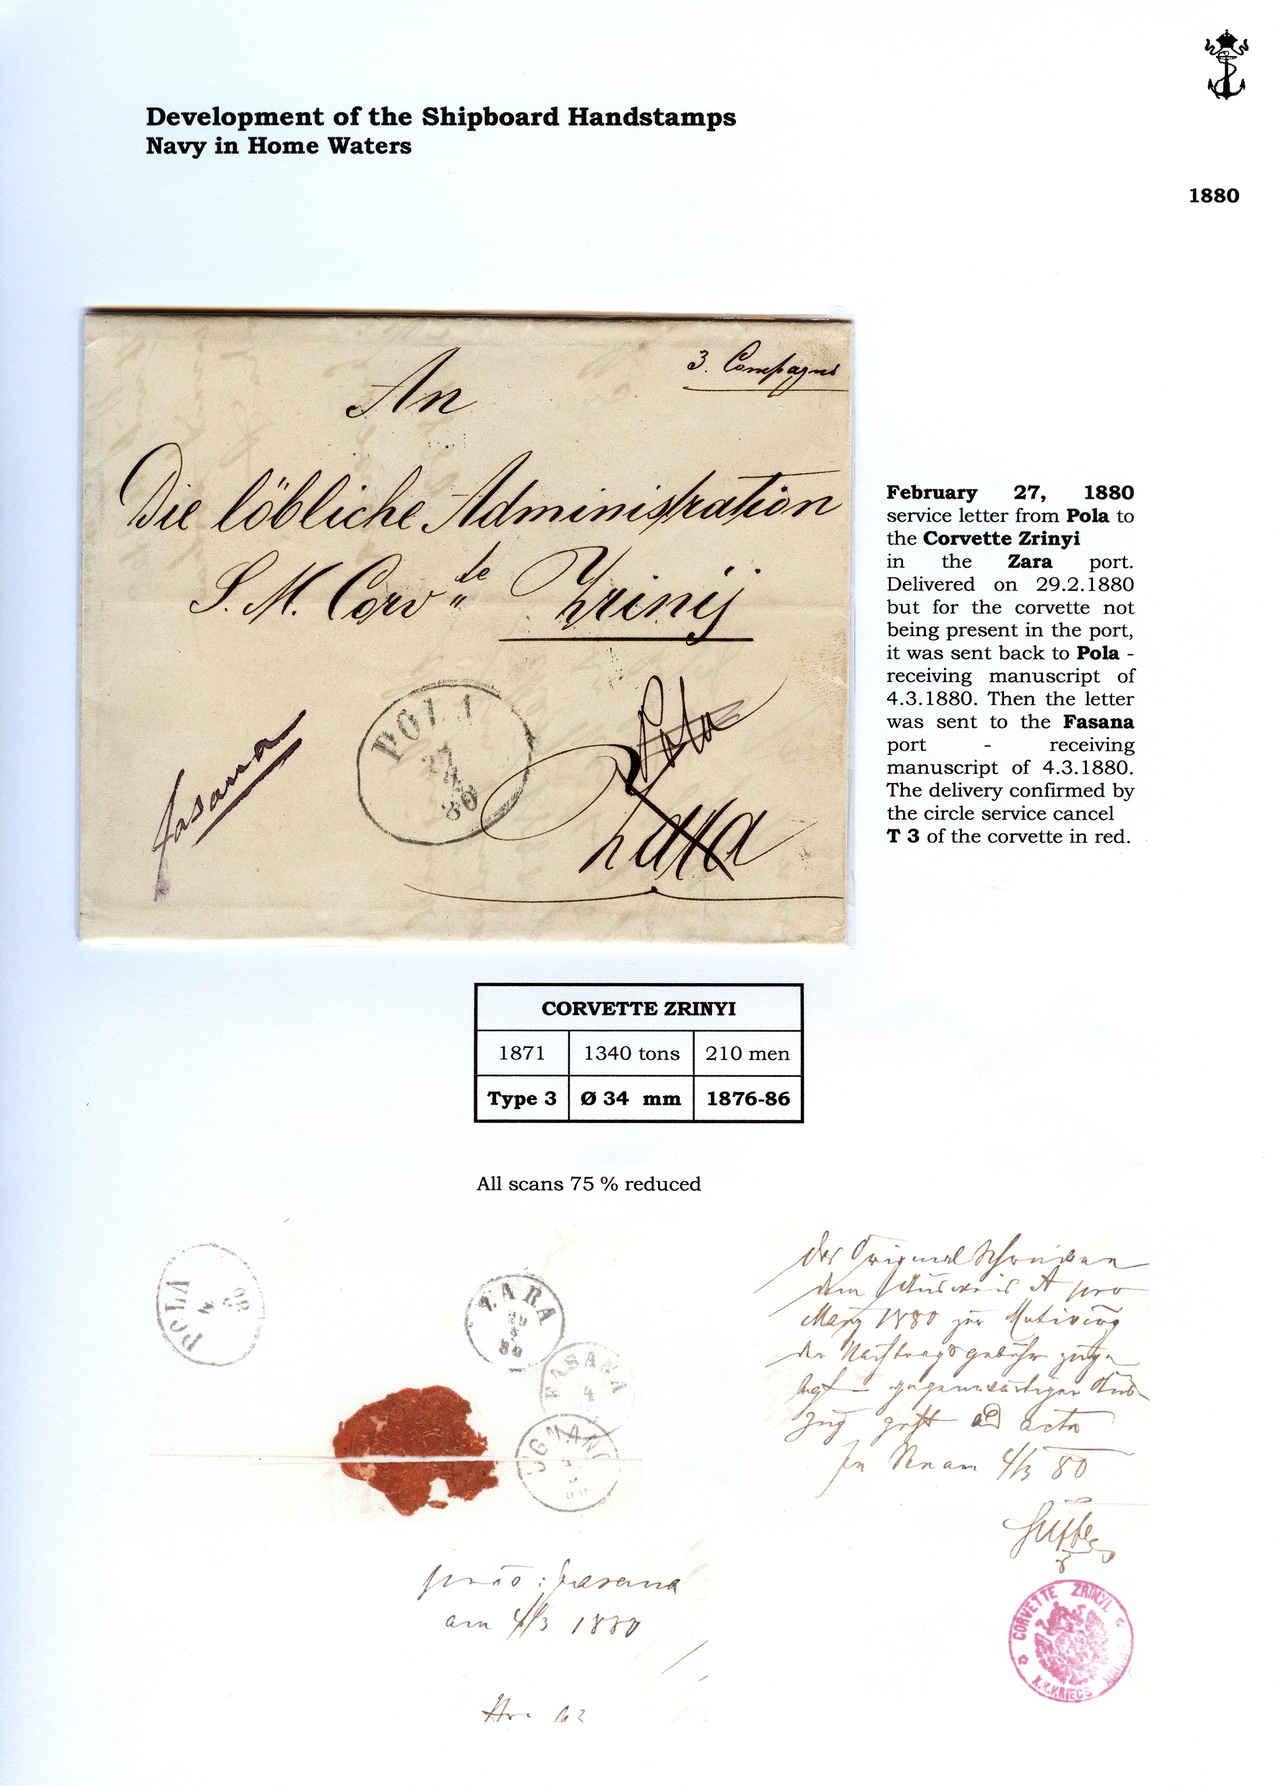 Development of the Shipboard Handstamps
Navy in Home Waters
1880
3. Compagnie
An
Die löbliche Administration
S. M. Corv.te Zrinij
Pola
Zara
Fasana
POLA
27
2
80
February 27, 1880
service letter from Pola to
the Corvette Zrinyi
in the Zara port.
Delivered on 29.2.1880
but for the corvette not
being present in the port,
it was sent back to Pola -
receiving manuscript of
4.3.1880. Then the letter
was sent to the Fasana
port - receiving
manuscript of 4.3.1880.
The delivery confirmed by
the circle service cancel
T 3 of the corvette in red.
CORVETTE ZRINYI
1871 1340 tons 210 men
Type 3 Ø 34 mm 1876-86
All scans 75 % reduced
POLA
ZARA
80
FASANA
4
Das Original Schreiben
dem Ausweis A pro
März 1880 zur
der
ad acta
4/3 80
Fasana
am 4/3 1880
CORVETTE ZRINYI
K.K.KRIEGS